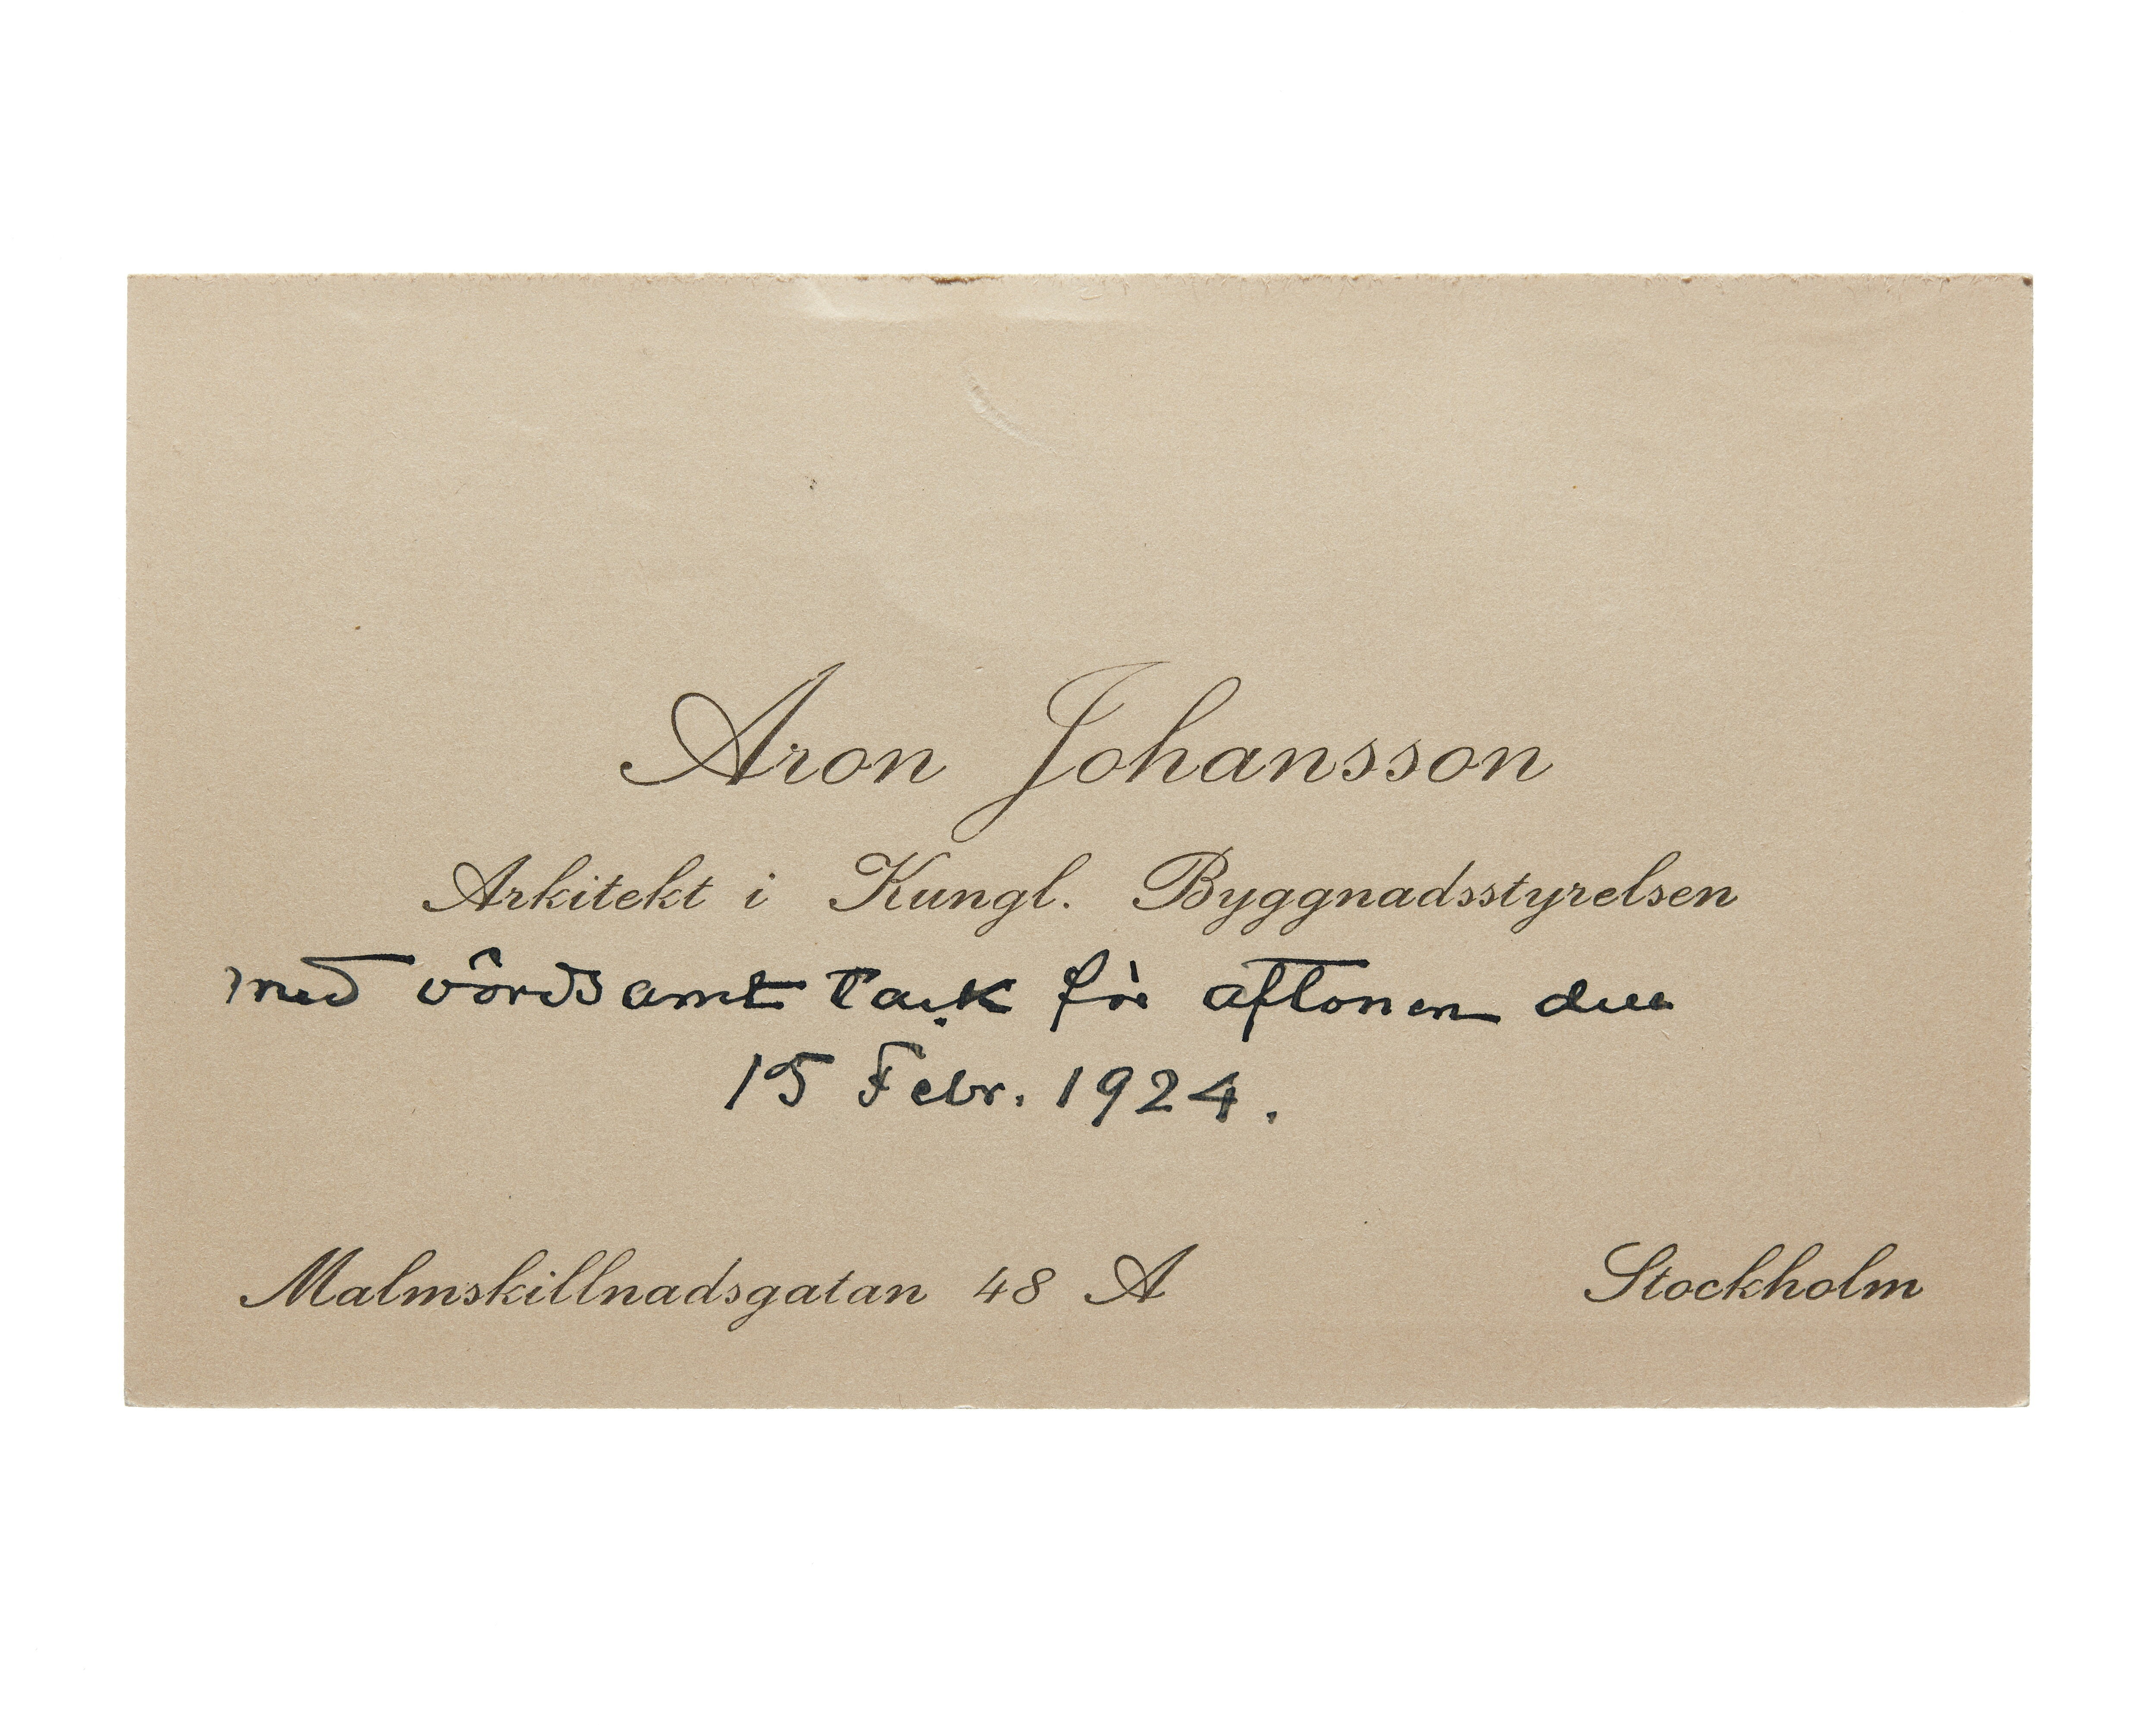 Aron Johansson
Arkitekt i Kungl. Byggnadsstyrelsen
med vördsamt tack för aftonen den
15 Febr. 1924.
Malmskillnadsgatan 48 A Stockholm